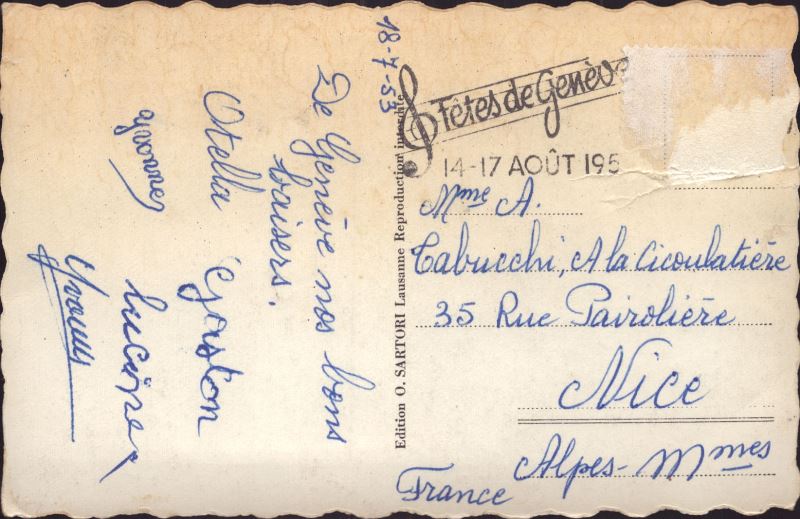 18-7-53
De Genève nos bons
baisers.
Otella Gaston
yvonne Lucine
Edition O. SARTORI Lausanne Reproduction interdite
Fêtes de Genève
14-17 AOÛT 195
Mme A.
Tabucchi, A la Cicoulatière
35 Rue Pairolière
Nice
Alpes-Mmes
France